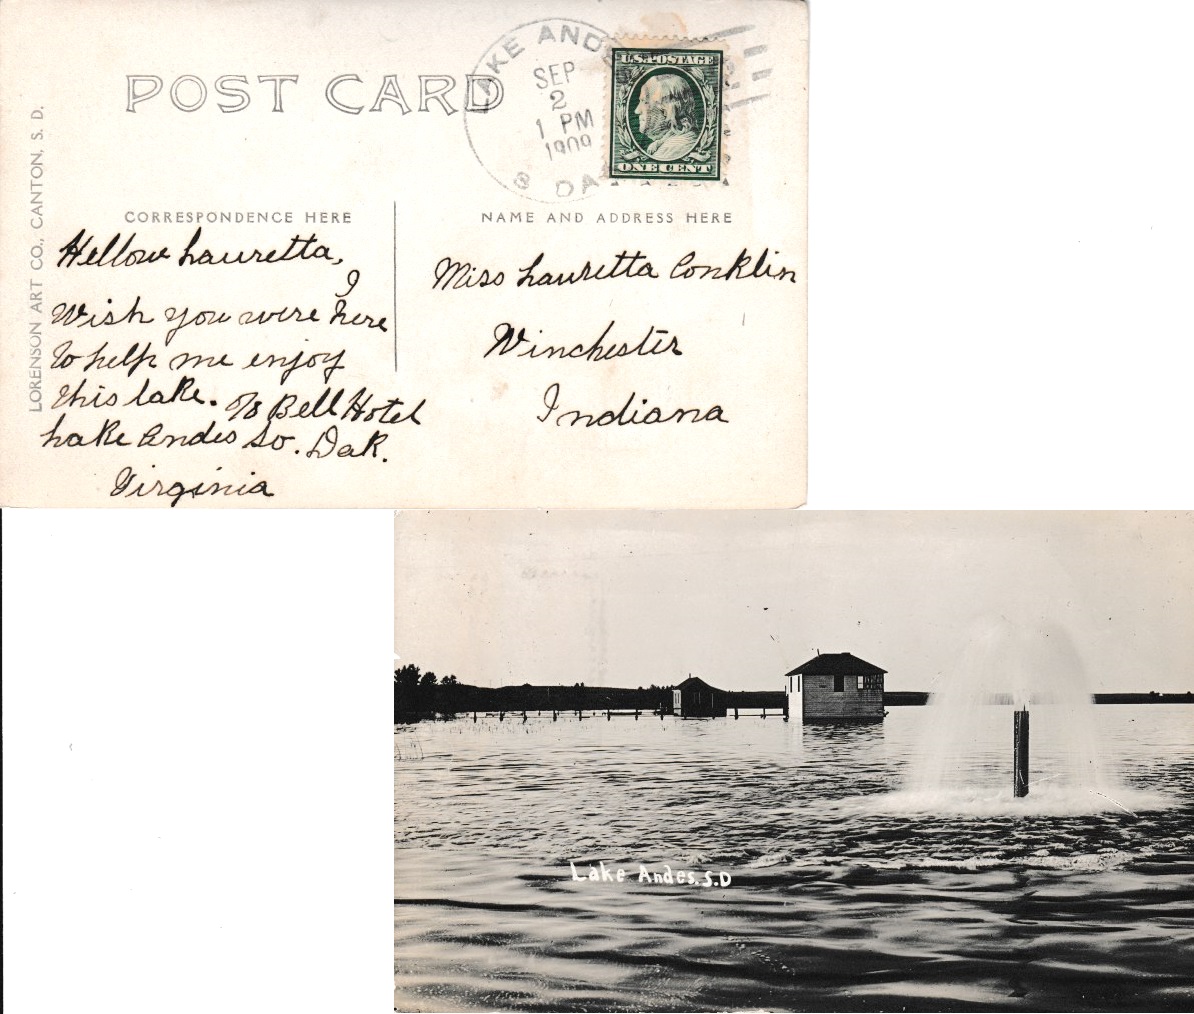 POST CARD
LAKE ANDES
SEP
2
1 PM
1909
S DAK
U.S. POSTAGE
ONE CENT
LORENSON ART CO., CANTON, S. D.
CORRESPONDENCE HERE
Hellow Lauretta,
I
Wish you were here
to help me enjoy
this lake. c/o Bell Hotel
Lake Andes So. Dak.
Virginia
NAME AND ADDRESS HERE
Miss Lauretta Conklin
Winchester
Indiana
Lake Andes. S.D